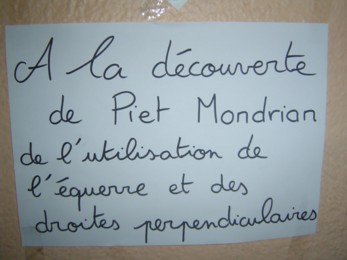 A la découverte
de Piet Mondrian
de l'utilisation de
l'équerre et des
droites perpendiculaires